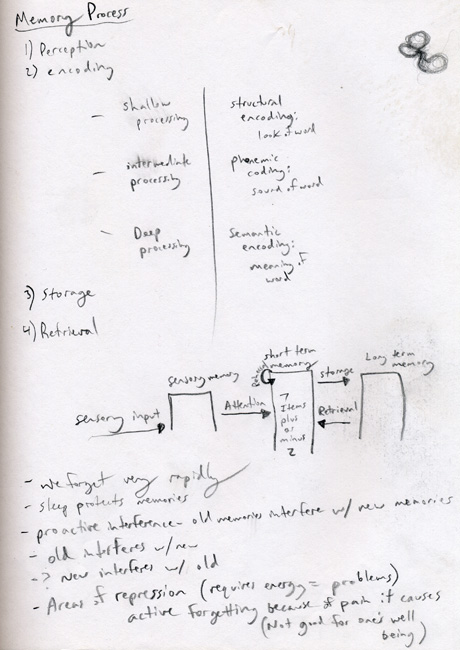 Memory Process
1) Perception
2) encoding
- shallow processing
structural encoding: look of word
- intermediate processing
phonemic coding: sound of word
- Deep processing
Semantic encoding: meaning of word
3) Storage
4) Retrieval
sensory input
sensory memory
Attention
short term memory
7 Items plus or minus 2
storage
Retrieval
Long term memory
- we forget very rapidly
- sleep protects memories
- proactive interference - old memories interfere w/ new memories
- old interferes w/ new
- ? new interferes w/ old
- Areas of repression (requires energy = problems)
active forgetting because of pain it causes
(Not good for one's well being)